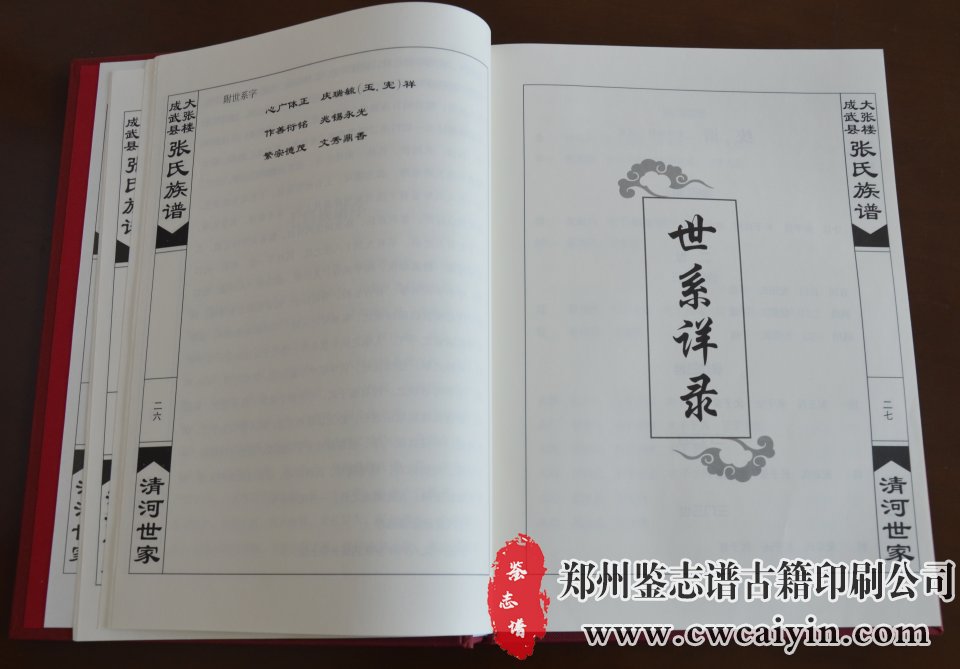 附世系字
心广体正 庆瑞毓(玉、宪)祥
作善衍铭 兆锡永光
繁宗德茂 文秀鼎香
大张楼
成武县
张氏族谱
二六
清河世家
成武县
张氏族谱
世系详录
大张楼
成武县
张氏族谱
二七
清河世家
鉴志谱
郑州鉴志谱古籍印刷公司
www.cwcaiyin.com